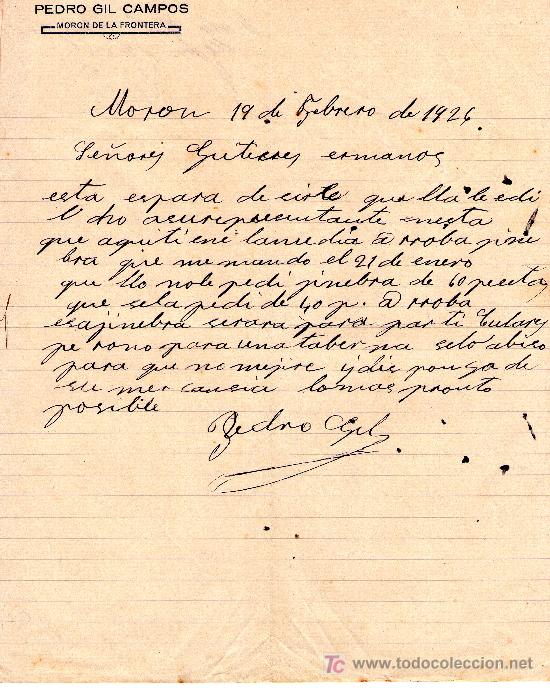 PEDRO GIL CAMPOS
MORON DE LA FRONTERA
Moron 19 de Febrero de 1926.
Señores Gutieres ermanos
esta es para de sirle que lla le e di
cho asu representante nesta
que aqui tiene la media @ rroba jine
bra que me mando el 21 de enero
que llo no le pedi jinebra de 60 pesetas
que se la pedi de 40 p. @ rroba
esa jinebra serara para par ti culares
pe ro no para una taber na se lo abiso
para qu no mejire i dis ponga de
su mer cansia lo mas pronto
posible
Pedro Gil
TC www.todocoleccion.net